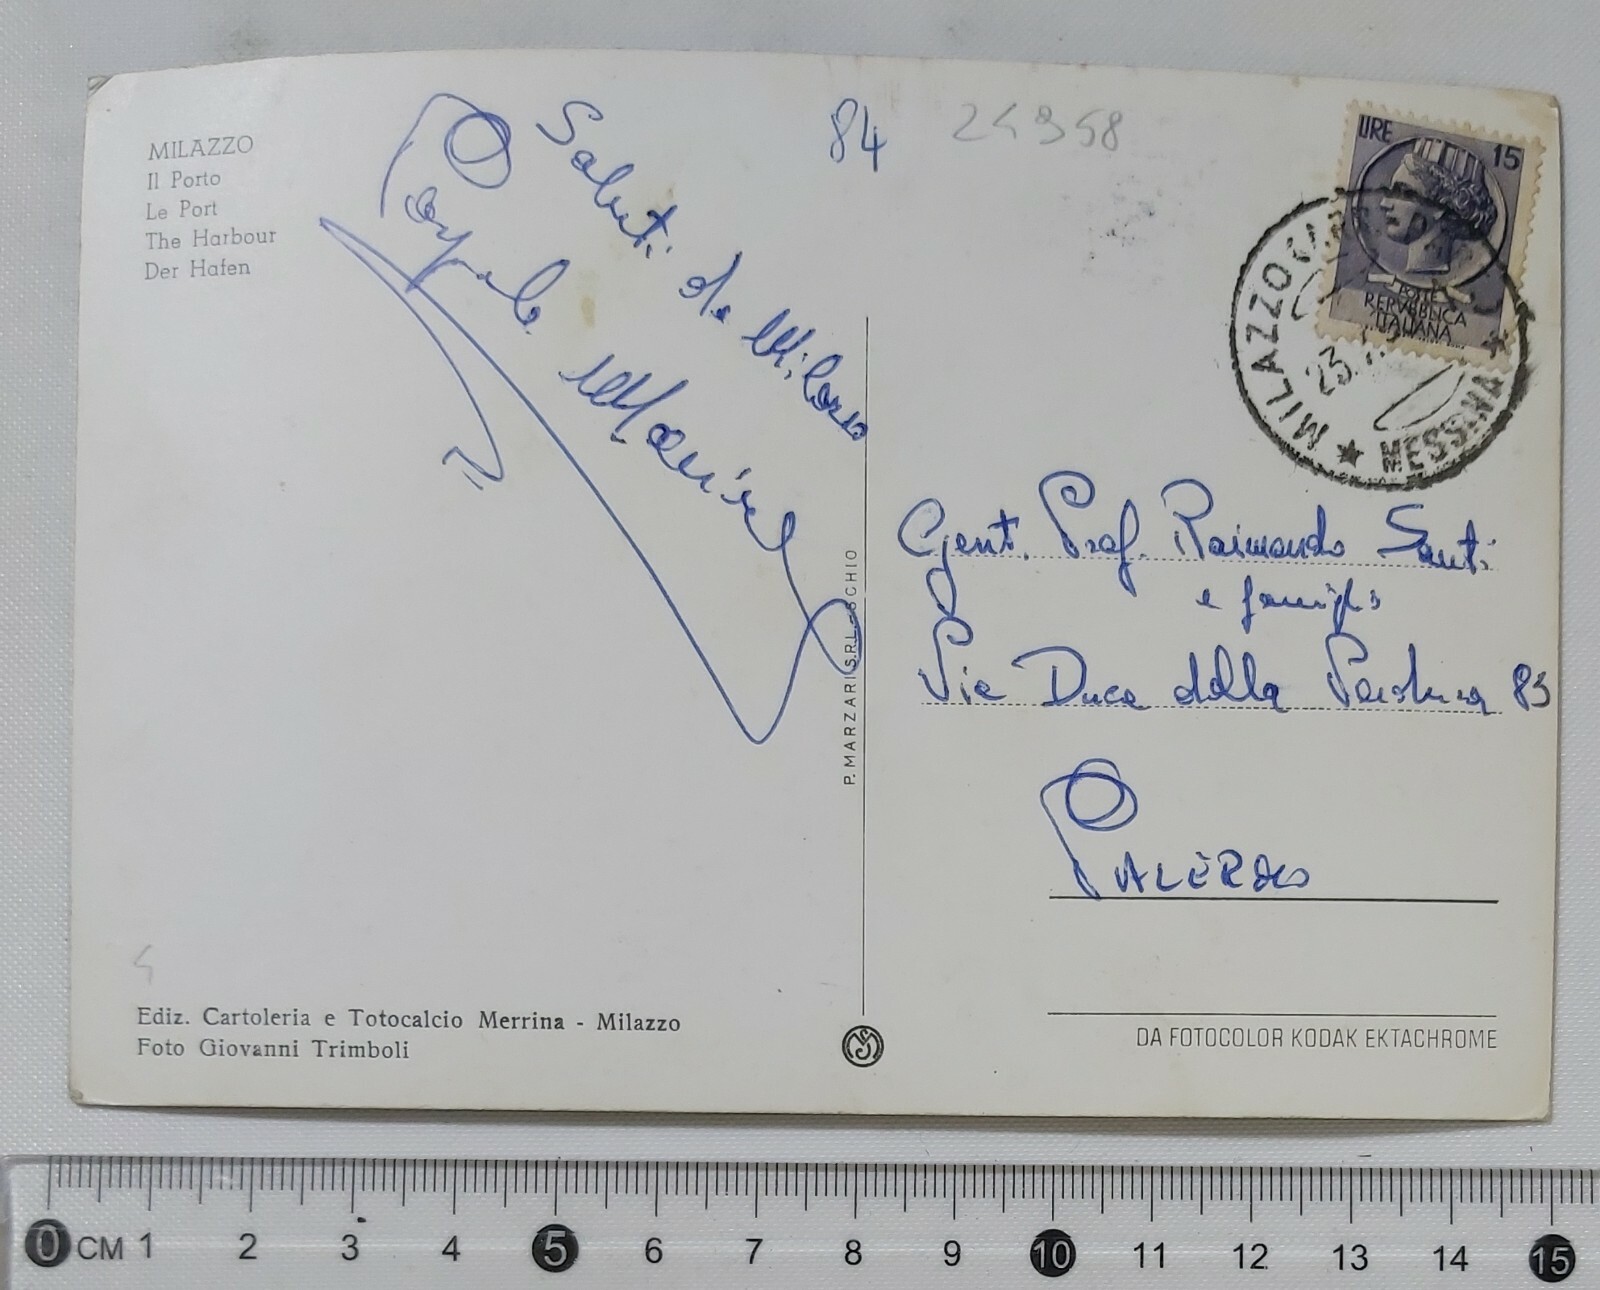 MILAZZO
Il Porto
Le Port
The Harbour
Der Hafen
Saluti da Milazzo
84
24358
LIRE 15
POSTE
REPVBBLICA
ITALIANA
MILAZZO
23
MESSINA
Gent. Prof. Raimondo Santi
e famiglia
Via Duca della Verdura 83
PALERMO
P. MARZARI S.R.L. - SCHIO
Ediz. Cartoleria e Totocalcio Merrina - Milazzo
Foto Giovanni Trimboli
DA FOTOCOLOR KODAK EKTACHROME
0 CM 1 2 3 4 5 6 7 8 9 10 11 12 13 14 15